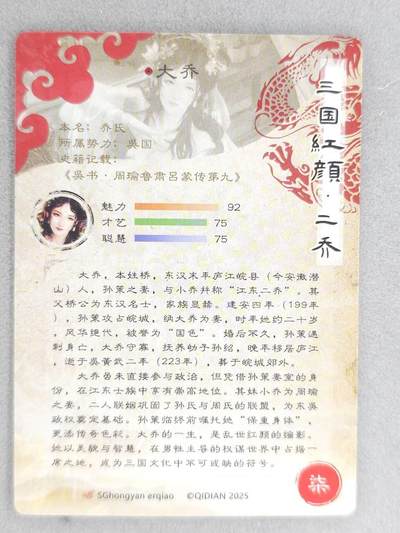 大乔
三国紅顔·二乔
本名：乔氏
所属势力：吳国
史籍记载：
《吳书·周瑜鲁肃吕蒙传第九》
魅力 92
才艺 75
聪慧 75
大乔，本姓桥，东汉末年庐江皖县（今安徽潜
山）人，孙策之妻，与小乔并称“江东二乔”。其
父桥公为东汉名士，家族显赫。建安四年（199年
），孙策攻占皖城，纳大乔为妻，时年她约二十岁
，风华绝代，被誉为“国色”。婚后不久，孙策遇
刺身亡，大乔守寡，抚养幼子孙绍，晚年移居庐江
，逝于吳黄武二年（223年），葬于皖城郊外。
大乔虽未直接参与政治，但凭借孙策妻室的身
份，在江东士族中享有崇高地位。其妹小乔为周瑜
之妻，二人联姻巩固了孙氏与周氏的联盟，为东吳
政权奠定基础。孙策临终前嘱托她“保重身体”，
更添传奇色彩。大乔的一生，是乱世红颜的缩影。
她以美貌与智慧，在男性主导的权谋世界中占据一
席之地，成为三国文化中不可或缺的符号。
柒
SGhongyan erqiao ©QIDIAN 2025